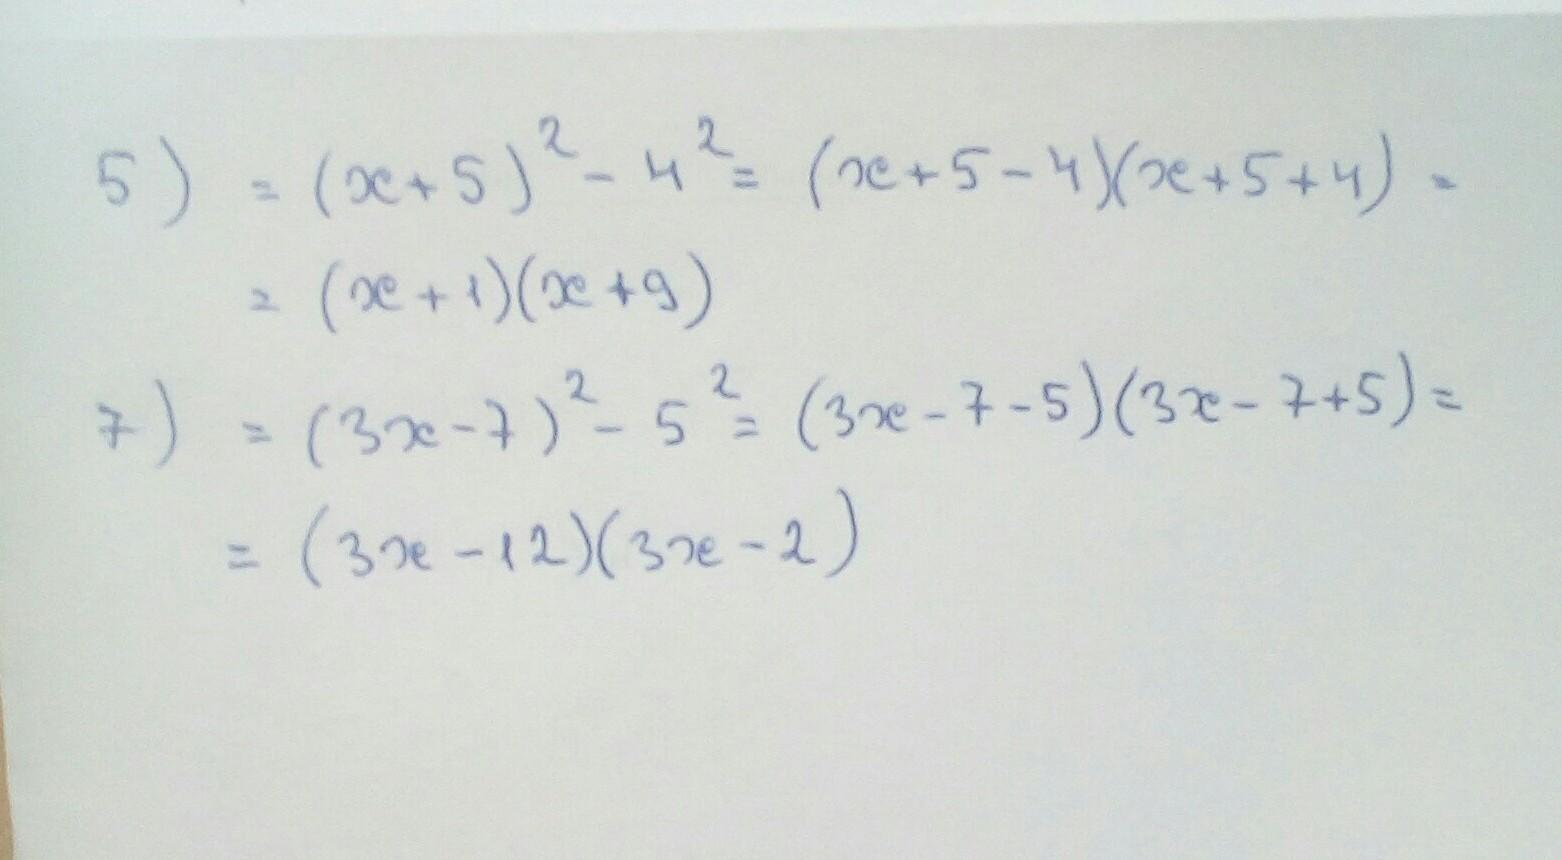 5) = (x+5)² - 4² = (x+5-4)(x+5+4) =
= (x+1)(x+9)
7) = (3x-7)² - 5² = (3x-7-5)(3x-7+5) =
= (3x-12)(3x-2)